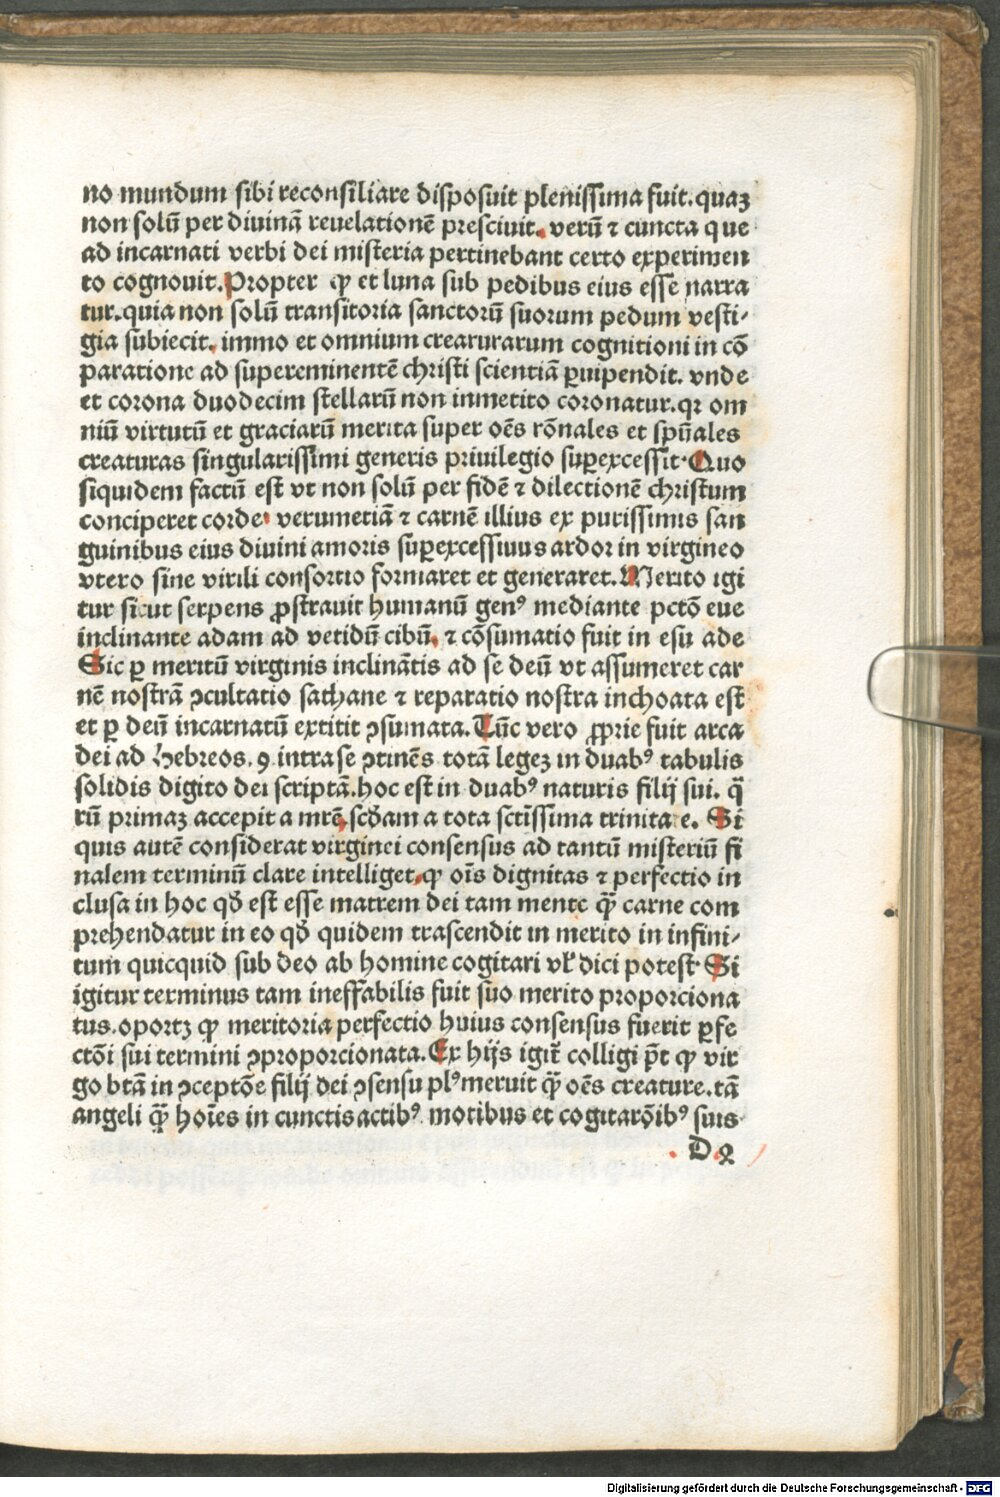 no mundum sibi reconsiliare disposuit plenissima fuit. quaꝫ
non solū per diuinā reuelationē presciuit. verū ⁊ cuncta que
ad incarnati verbi dei misteria pertinebant certo experimen
to cognouit. Propter ꝙ et luna sub pedibus eius esse narra
tur. quia non solū transitoria sanctorū suorum pedum vesti⸗
gia subiecit. immo et omnium crearurarum cognitioni in cō
paratione ad supereminentē christi scientiā ꝑuipendit. vnde
et corona duodecim stellarū non inmetito coronatur. qꝛ om
niū virtutū et graciarū merita super oēs rōnales et spūales
creaturas singularissimi generis priuilegio suꝑexcessit. Quo
siquidem factū est vt non solū per fidē ⁊ dilectionē christum
conciperet corde. verumetiā ⁊ carnē illius ex purissimis san
guinibus eius diuini amoris suꝑexcessiuus ardor in virgineo
vtero sine virili consortio formaret et generaret. Merito igi
tur sicut serpens ꝓstrauit humanū genꝰ mediante pctō eue
inclinante adam ad vetidū cibū. ⁊ cōsumatio fuit in esu ade
Sic ꝑ meritū virginis inclināntis ad se deū vt assumeret car
nē nostrā ꝯcultatio sathane ⁊ reparatio nostra inchoata est
et ꝑ deū incarnatū extitit ꝯsumata. Tūc vero ꝓprie fuit arca
dei ad Hebreos. 9. intra se ꝯtinēs totā legeꝫ in duabꝰ tabulis
solidis digito dei scriptā. hoc est in duabꝰ naturis filij sui. q̄
rū primaꝫ accepit a mrē, scđam a tota sctīssima trinitate. Si
quis autē considerat virginei consensus ad tantū misteriū fi
nalem terminū clare intelliget. ꝙ oīs dignitas ⁊ perfectio in
clusa in hoc qđ est esse matrem dei tam mente q̄ꝫ carne com
prehendatur in eo qđ quidem trascendit in merito in infini⸗
tum quicquid sub deo ab homine cogitari vł dici potest. Si
igitur terminus tam ineffabilis fuit suo merito proporciona
tus. oportꝫ ꝙ meritoria perfectio huius consensus fuerit ꝑfe
ctōi sui termini ꝯproporcionata. Ex hijs igit̄ colligi pt̄ ꝙ vir
go btā in ꝯceptōe filij dei ꝯsensu plꝰ meruit q̄ꝫ oēs creature. tā
angeli q̄ꝫ hoīes in cunctis actibꝰ motibus et cogitarōibꝰ suis
D 2
Digitalisierung gefördert durch die Deutsche Forschungsgemeinschaft - DFG